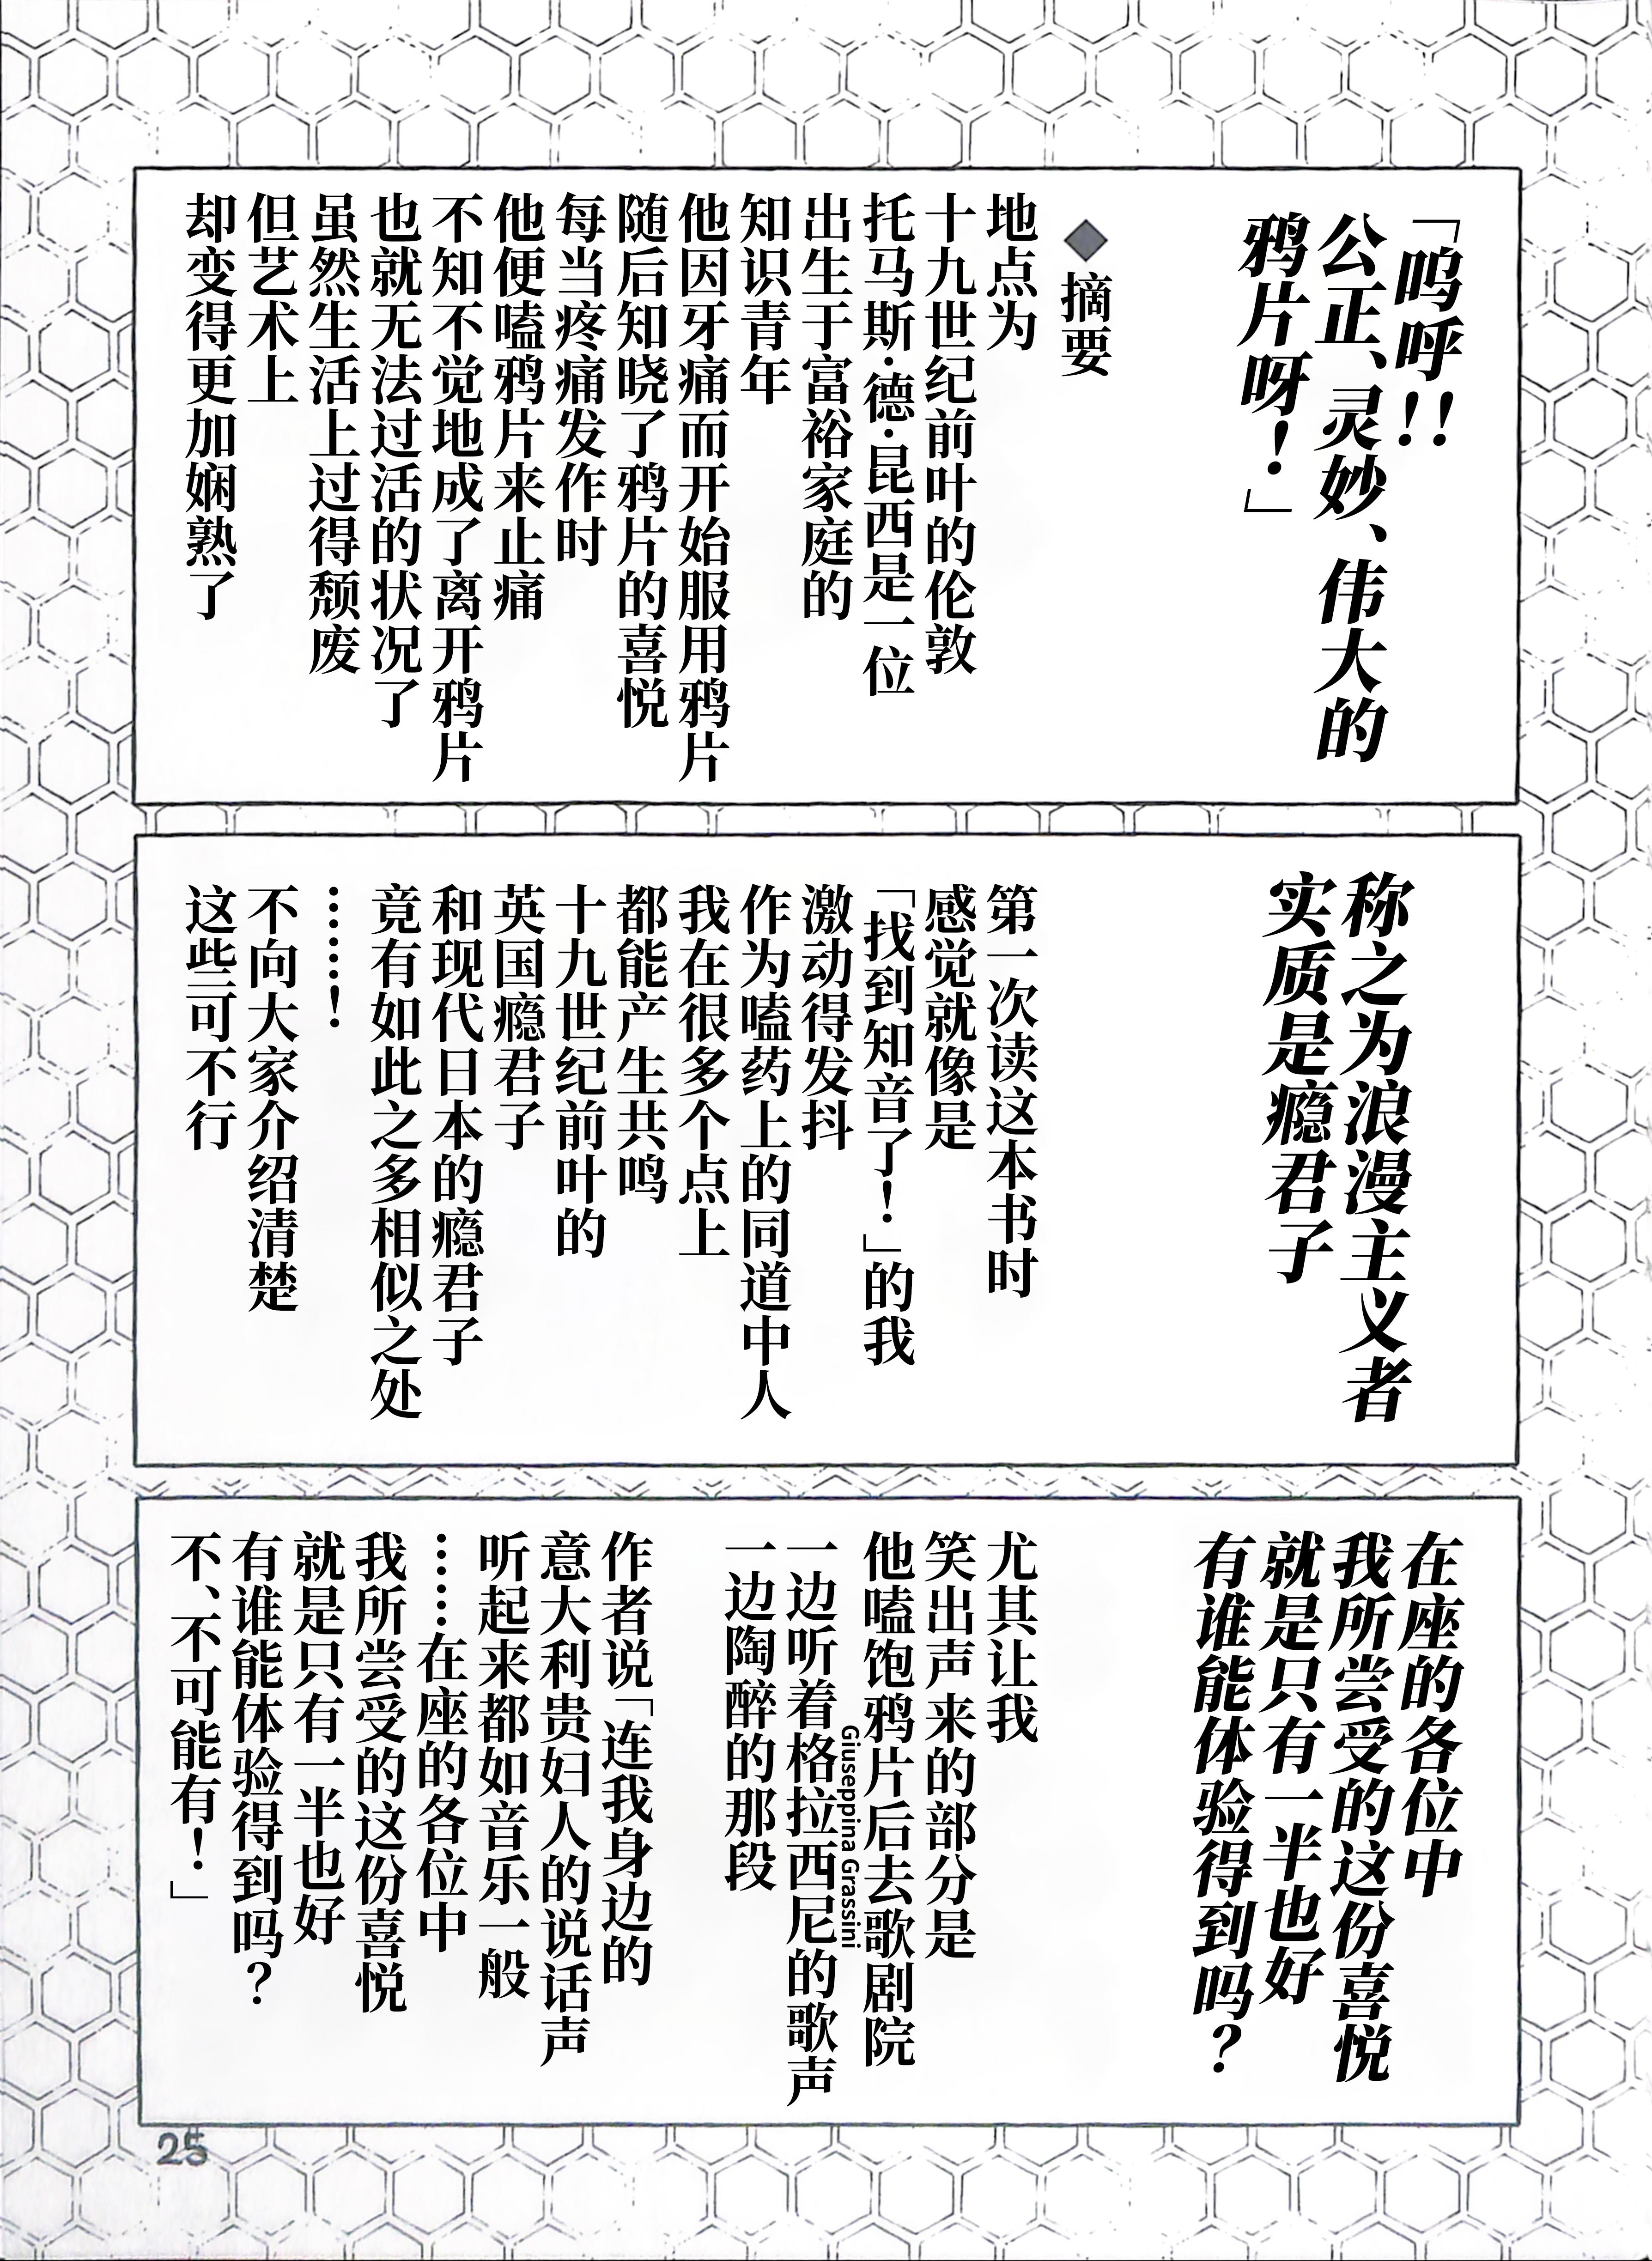 「呜呼!!
公正、灵妙、伟大的
鸦片呀!」
◆摘要
地点为
十九世纪前叶的伦敦
托马斯·德·昆西是一位
出生于富裕家庭的
知识青年
他因牙痛而开始服用鸦片
随后知晓了鸦片的喜悦
每当疼痛发作时
他便嗑鸦片来止痛
不知不觉地成了离开鸦片
也就无法过活的状况了
虽然生活上过得颓废
但艺术上
却变得更加娴熟了
称之为浪漫主义者
实质是瘾君子
第一次读这本书时
感觉就像是
「找到知音了!」的我
激动得发抖
作为嗑药上的同道中人
我在很多个点上
都能产生共鸣
十九世纪前叶的
英国瘾君子
和现代日本的瘾君子
竟有如此之多相似之处
……!
不向大家介绍清楚
这些可不行
在座的各位中
我所尝受的这份喜悦
就是只有一半也好
有谁能体验得到吗?
尤其让我
笑出声来的部分是
他嗑饱鸦片后去歌剧院
Giuseppina Grassini
一边听着格拉西尼的歌声
一边陶醉的那段
作者说「连我身边的
意大利贵妇人的说话声
听起来都如音乐一般
……在座的各位中
我所尝受的这份喜悦
就是只有一半也好
有谁能体验得到吗?
不、不可能有!」
25